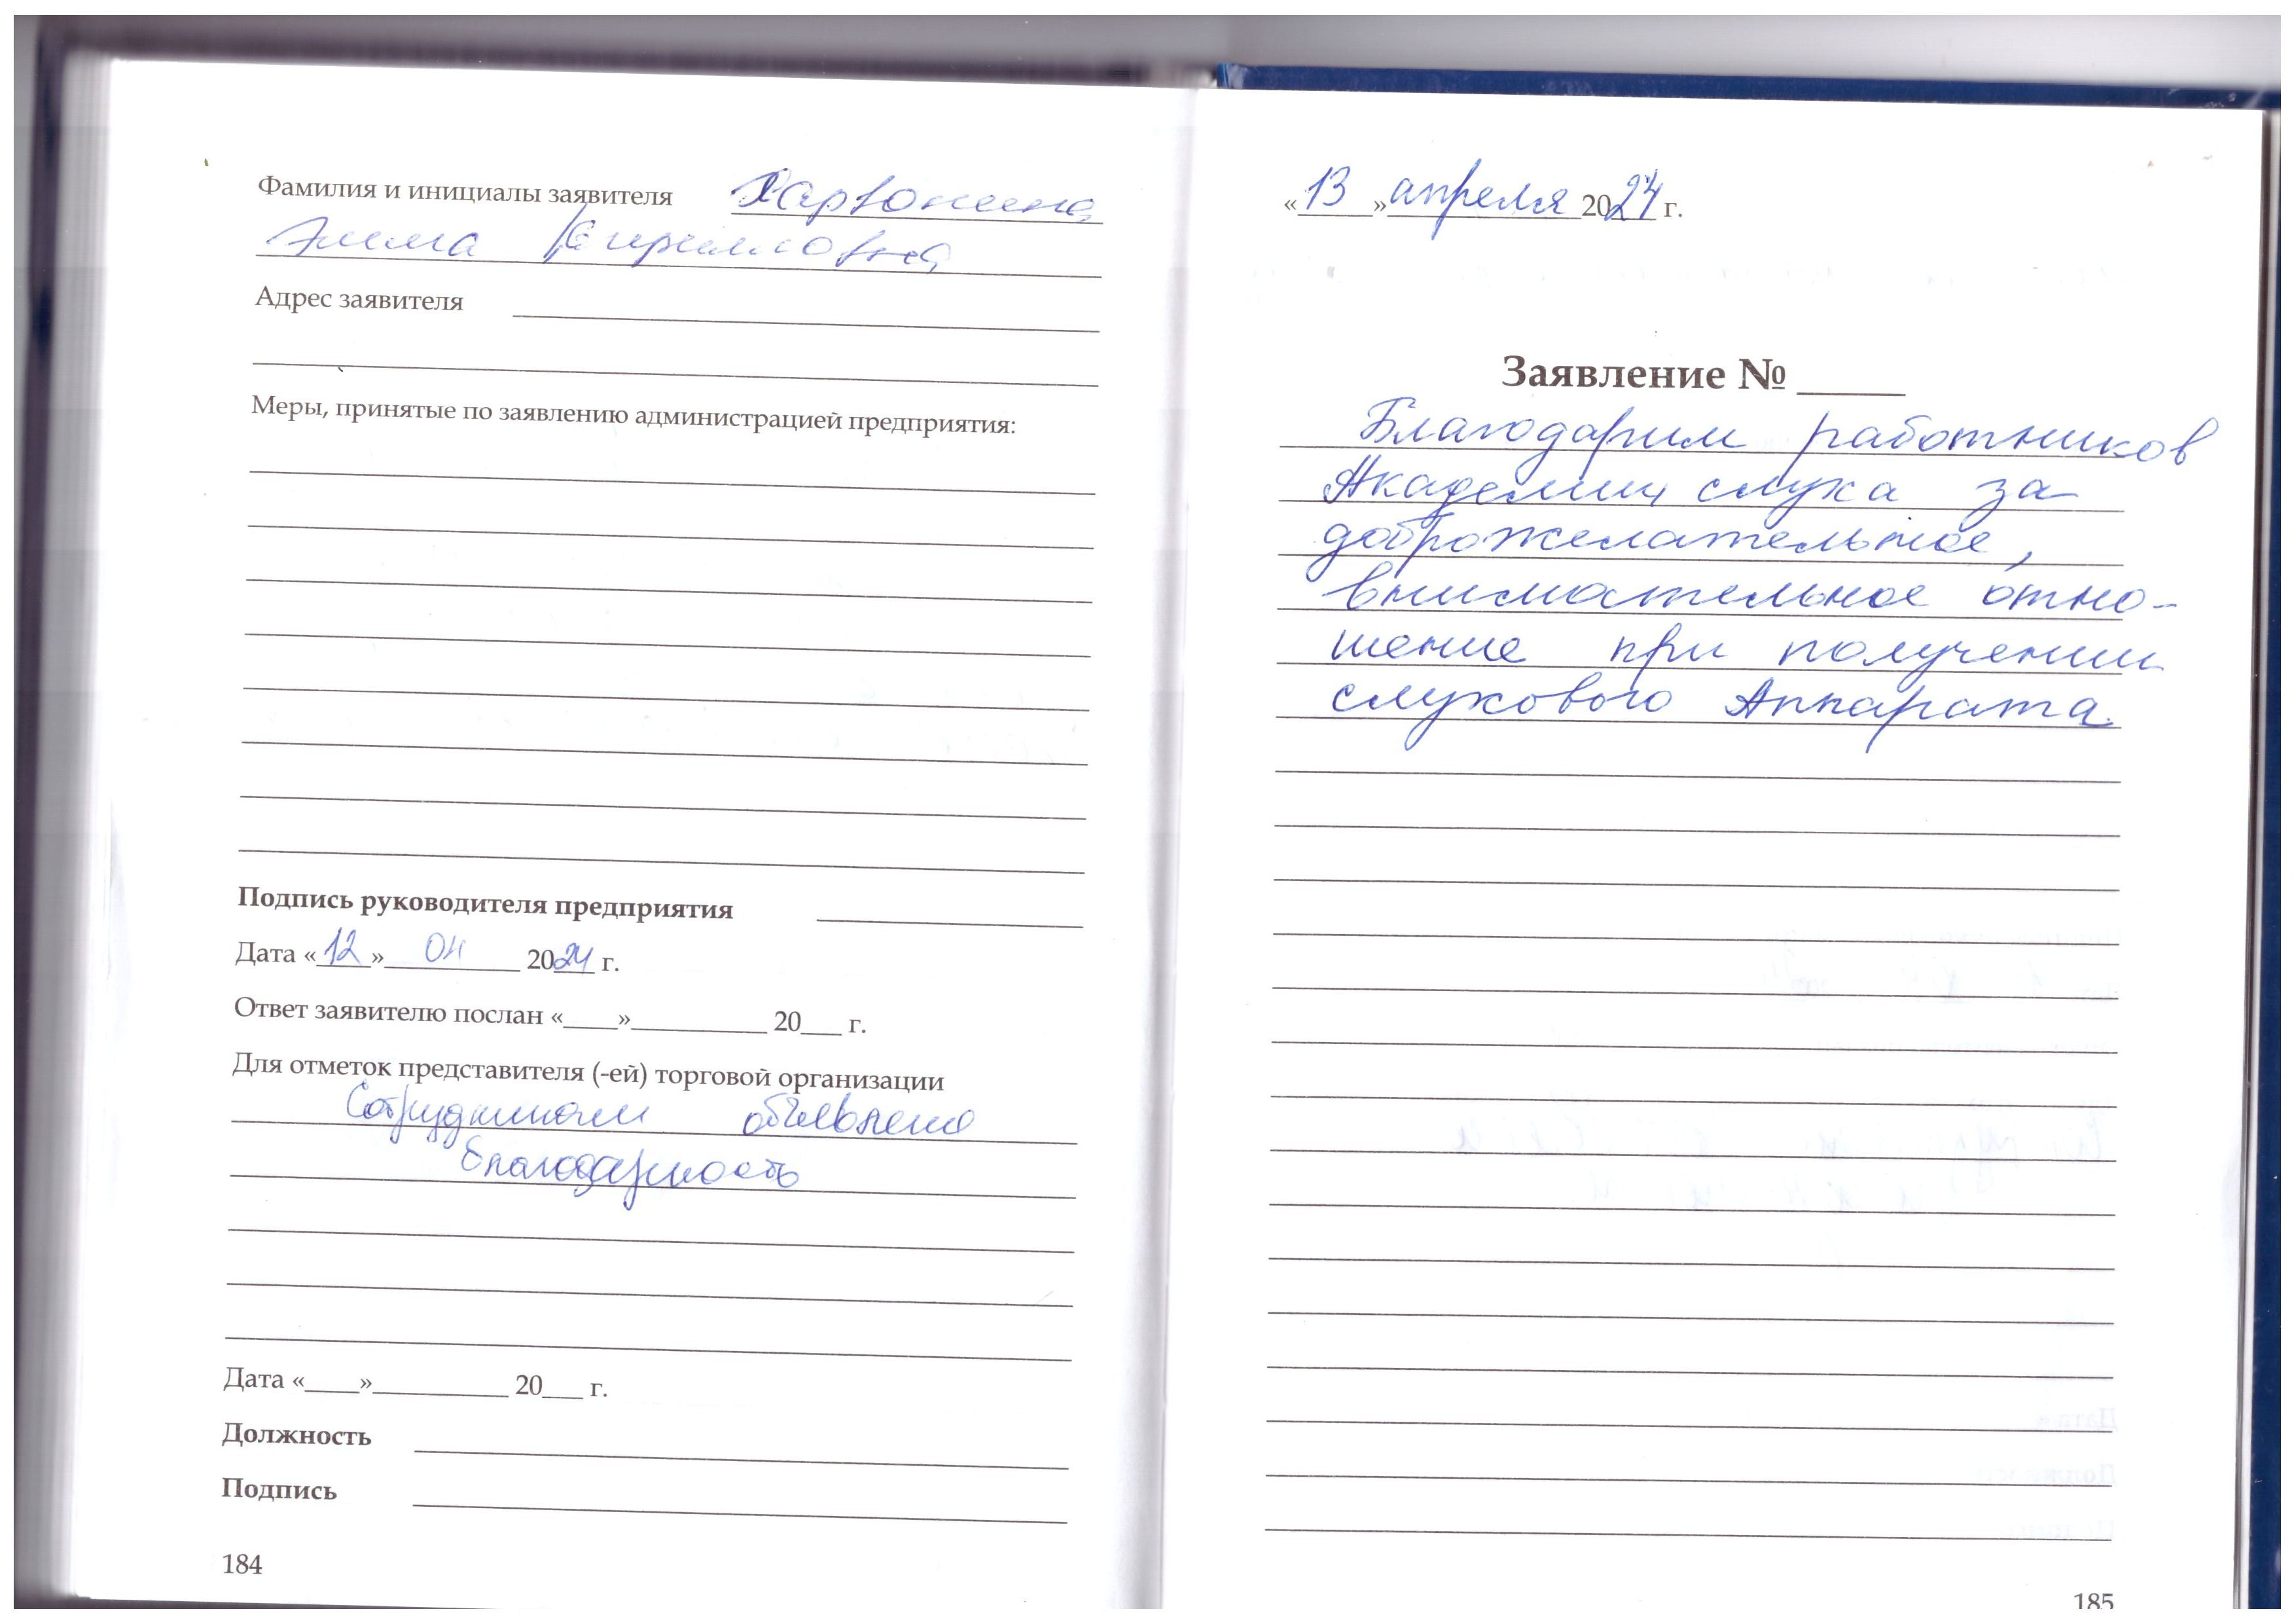 Фамилия и инициалы заявителя
Адрес заявителя
Меры, принятые по заявлению администрацией предприятия:
Подпись руководителя предприятия
Дата «12» 04 2024 г.
Ответ заявителю послан «____»__________ 20___ г.
Для отметок представителя (-ей) торговой организации
Сотрудникам объявлена
благодарность
Дата «____»__________ 20___ г.
Должность
Подпись
184
«13» апреля 2024 г.
Заявление № _____
Благодарим работников
Академии слуха за
доброжелательное,
внимательное отно-
шение при получении
слухового Аппарата.
185